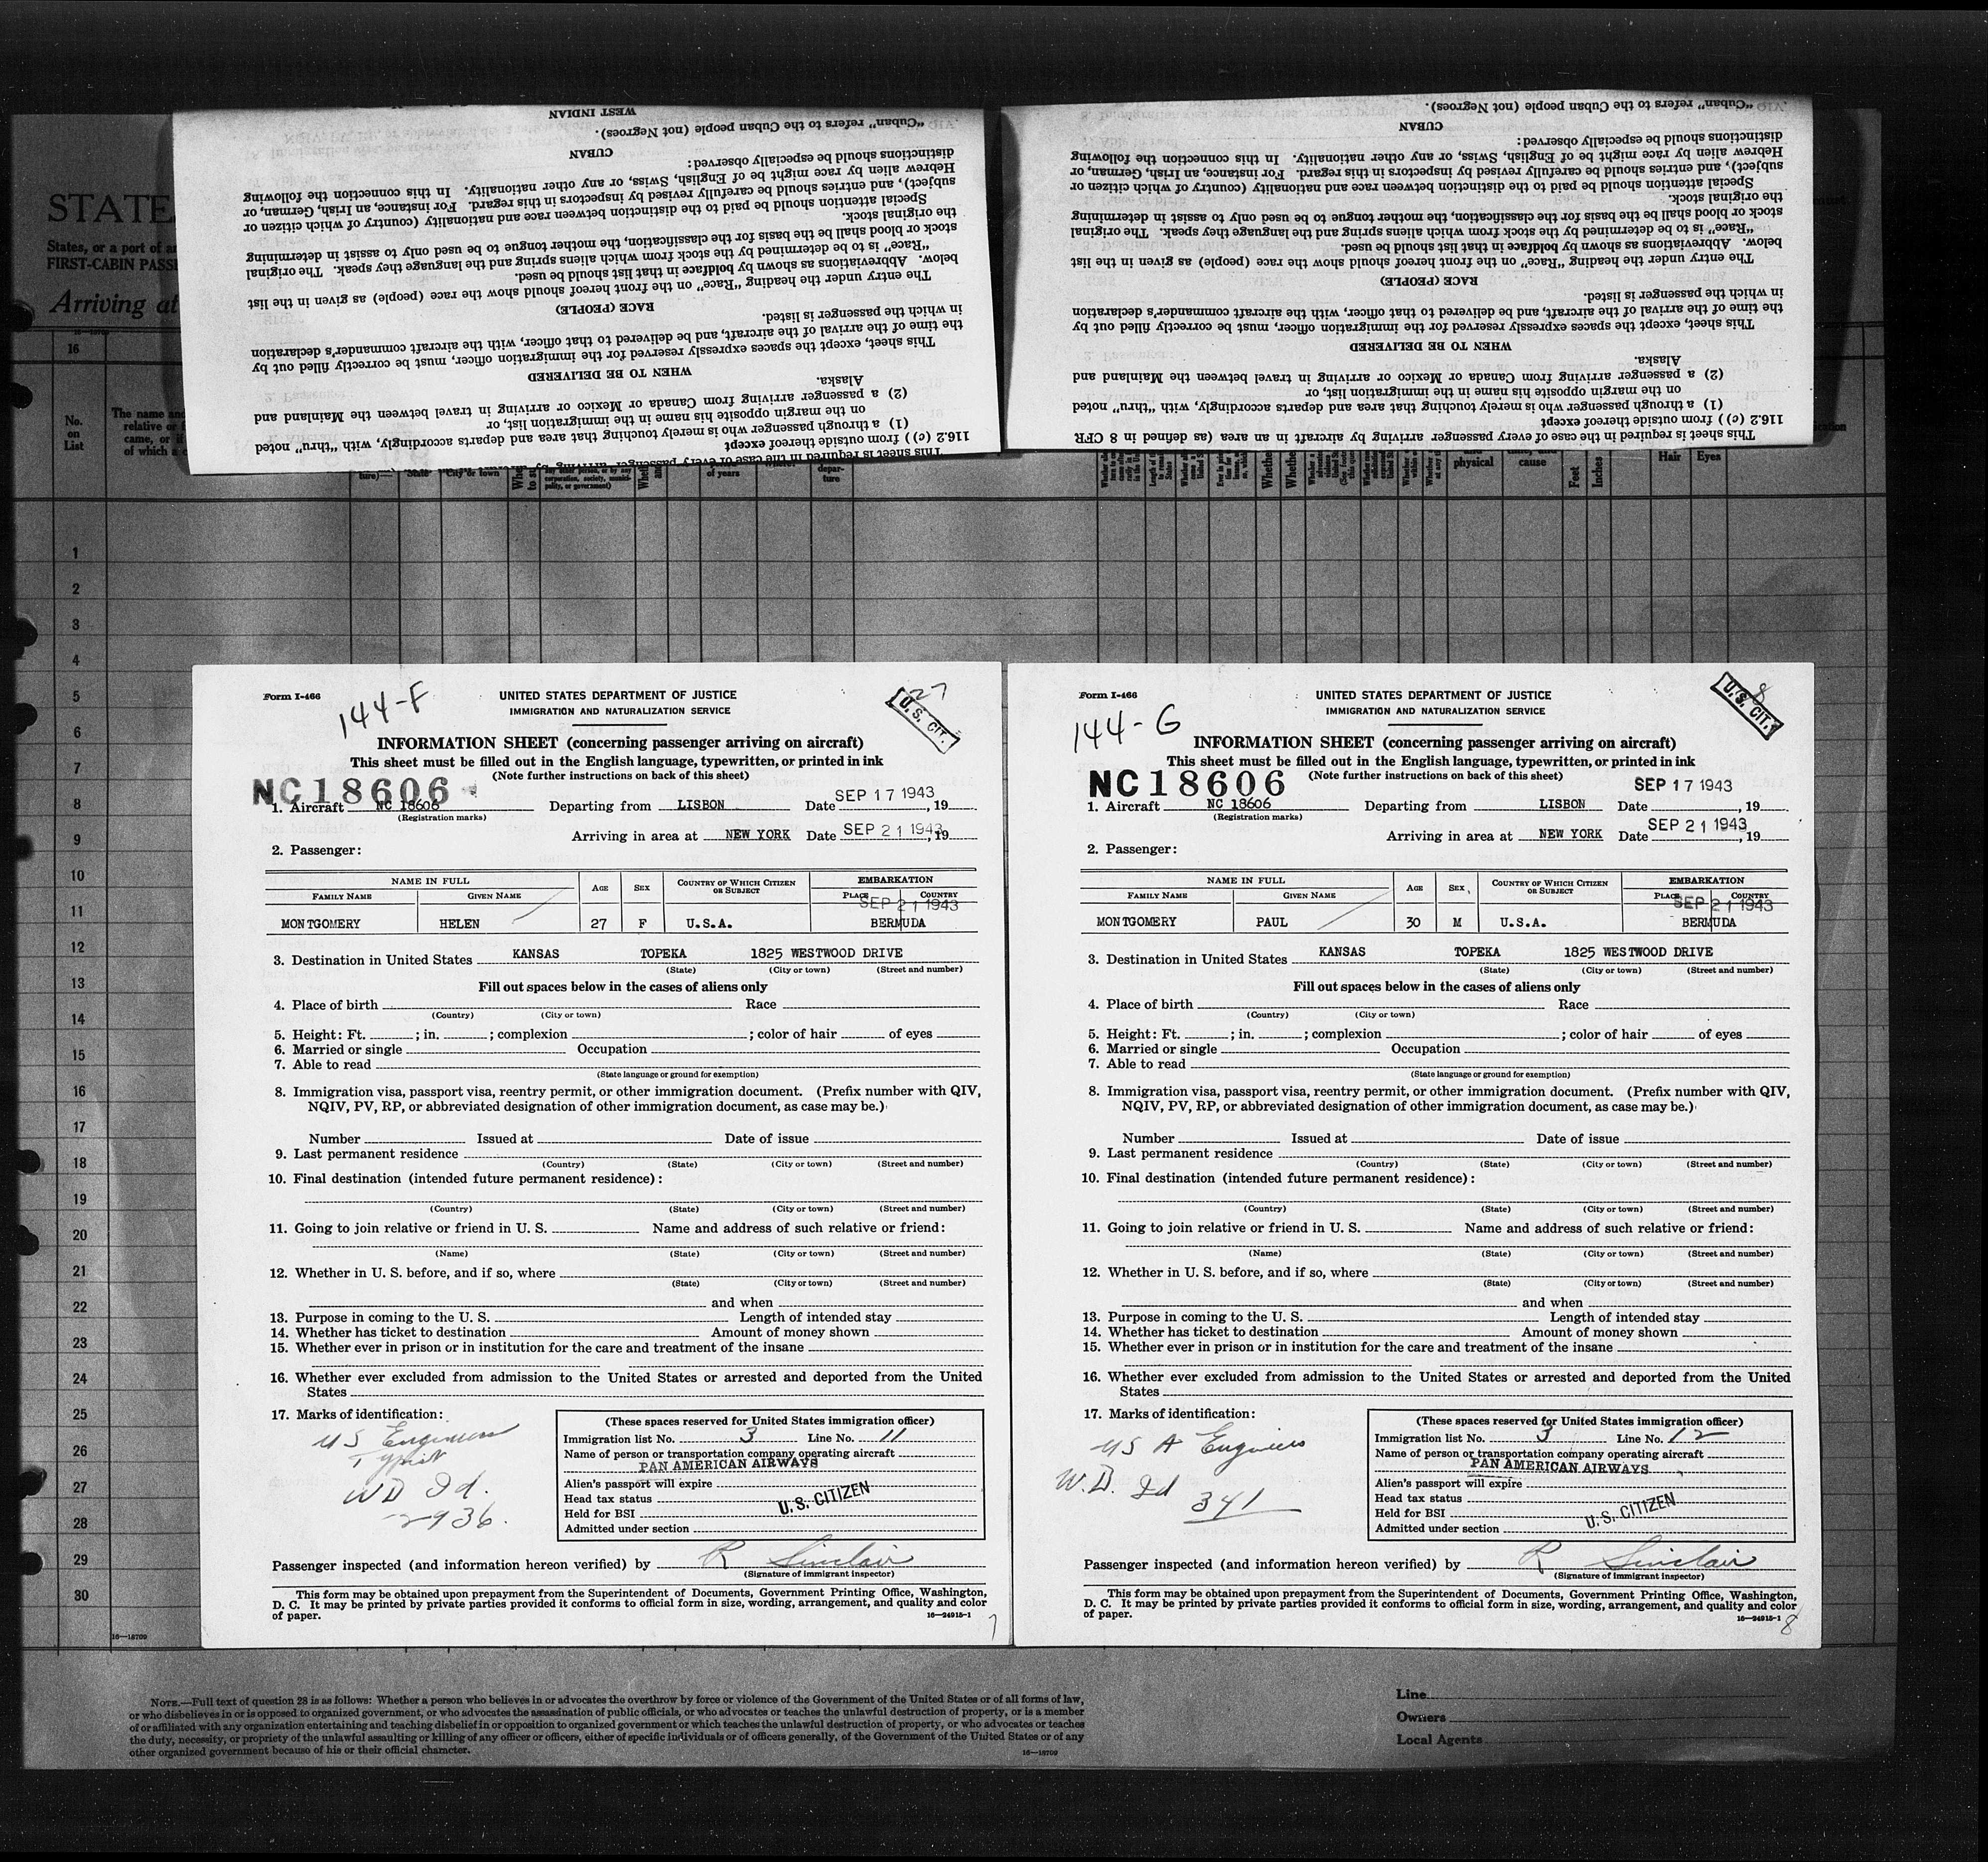 WEST INDIAN
"Cuban" refers to the Cuban people (not Negroes).
CUBAN
distinctions should be especially observed:
Hebrew alien by race might be of English, Swiss, or any other nationality. In this connection the following
subject), and entries should be carefully revised by inspectors in this regard. For instance, an Irish, German, or
Special attention should be paid to the distinction between race and nationality (country of which citizen or
the original stock.
stock or blood shall be the basis for the classification, the mother tongue to be used only to assist in determining
"Race" is to be determined by the stock from which aliens spring and the language they speak. The original
below. Abbreviations as shown by boldface in that list should be used.
The entry under the heading "Race" on the front hereof should show the race (people) as given in the list
RACE (PEOPLE)
in which the passenger is listed.
the time of the arrival of the aircraft, and be delivered to that officer, with the aircraft commander's declaration
This sheet, except the spaces expressly reserved for the immigration officer, must be correctly filled out by
WHEN TO BE DELIVERED
Alaska.
(2) a passenger arriving from Canada or Mexico or arriving in travel between the Mainland and
on the margin opposite his name in the immigration list, or
(1) a through passenger who is merely touching that area and departs accordingly, with "thru" noted
116.2 (c)) from outside thereof except
This sheet is required in the case of every passenger arriving by
"Cuban" refers to the Cuban people (not Negroes).
CUBAN
distinctions should be especially observed:
Hebrew alien by race might be of English, Swiss, or any other nationality. In this connection the following
subject), and entries should be carefully revised by inspectors in this regard. For instance, an Irish, German, or
Special attention should be paid to the distinction between race and nationality (country of which citizen or
the original stock.
stock or blood shall be the basis for the classification, the mother tongue to be used only to assist in determining
"Race" is to be determined by the stock from which aliens spring and the language they speak. The original
below. Abbreviations as shown by boldface in that list should be used.
The entry under the heading "Race" on the front hereof should show the race (people) as given in the list
RACE (PEOPLE)
in which the passenger is listed.
the time of the arrival of the aircraft, and be delivered to that officer, with the aircraft commander's declaration
This sheet, except the spaces expressly reserved for the immigration officer, must be correctly filled out by
WHEN TO BE DELIVERED
Alaska.
(2) a passenger arriving from Canada or Mexico or arriving in travel between the Mainland and
on the margin opposite his name in the immigration list, or
(1) a through passenger who is merely touching that area and departs accordingly, with "thru" noted
116.2 (c)) from outside thereof except
This sheet is required in the case of every passenger arriving by aircraft in an area (as defined in 8 CFR
STATE
States, or a port of
FIRST-CABIN PASS
Arriving at
16
No. on List
The name and
relative or
came, or if
of which a
State
City or town
of years
departure
physical
cause
Feet
Inches
Hair
Eyes
1
2
3
4
5
6
7
8
9
10
11
12
13
14
15
16
17
18
19
20
21
22
23
24
25
26
27
28
29
30
16—18709
Form I-466
144-F
UNITED STATES DEPARTMENT OF JUSTICE
IMMIGRATION AND NATURALIZATION SERVICE
27
U.S. CIT.
INFORMATION SHEET (concerning passenger arriving on aircraft)
This sheet must be filled out in the English language, typewritten, or printed in ink
(Note further instructions on back of this sheet)
NC18606
1. Aircraft NC 18606 Departing from LISBON Date SEP 17 1943, 19
(Registration marks)
Arriving in area at NEW YORK Date SEP 21 1943, 19
2. Passenger:
NAME IN FULL
FAMILY NAME GIVEN NAME AGE SEX COUNTRY OF WHICH CITIZEN OR SUBJECT EMBARKATION
PLACE COUNTRY
SEP 21 1943
MONTGOMERY HELEN 27 F U.S.A. BERMUDA
3. Destination in United States KANSAS TOPEKA 1825 WESTWOOD DRIVE
(State) (City or town) (Street and number)
Fill out spaces below in the cases of aliens only
4. Place of birth Race
(Country) (City or town)
5. Height: Ft. ; in. ; complexion ; color of hair of eyes
6. Married or single Occupation
7. Able to read
(State language or ground for exemption)
8. Immigration visa, passport visa, reentry permit, or other immigration document. (Prefix number with QIV,
NQIV, PV, RP, or abbreviated designation of other immigration document, as case may be.)
Number Issued at Date of issue
9. Last permanent residence
(Country) (State) (City or town) (Street and number)
10. Final destination (intended future permanent residence):
(Country) (State) (City or town) (Street and number)
11. Going to join relative or friend in U. S. Name and address of such relative or friend:
(Name) (State) (City or town) (Street and number)
12. Whether in U. S. before, and if so, where
(State) (City or town) (Street and number)
and when
13. Purpose in coming to the U. S. Length of intended stay
14. Whether has ticket to destination Amount of money shown
15. Whether ever in prison or in institution for the care and treatment of the insane
16. Whether ever excluded from admission to the United States or arrested and deported from the United
States
17. Marks of identification:
US Engineers
Typist
WD Id.
2936.
(These spaces reserved for United States immigration officer)
Immigration list No. 3 Line No. 11
Name of person or transportation company operating aircraft
PAN AMERICAN AIRWAYS
Alien's passport will expire
Head tax status
Held for BSI
Admitted under section
U.S. CITIZEN
Passenger inspected (and information hereon verified) by R Sinclair
(Signature of immigrant inspector)
This form may be obtained upon prepayment from the Superintendent of Documents, Government Printing Office, Washington,
D. C. It may be printed by private parties provided it conforms to official form in size, wording, arrangement, and quality and color
of paper.
16—24915-1
7
Form I-466
144-G
UNITED STATES DEPARTMENT OF JUSTICE
IMMIGRATION AND NATURALIZATION SERVICE
8
U.S. CIT.
INFORMATION SHEET (concerning passenger arriving on aircraft)
This sheet must be filled out in the English language, typewritten, or printed in ink
(Note further instructions on back of this sheet)
NC18606
1. Aircraft NC 18606 Departing from LISBON Date SEP 17 1943, 19
(Registration marks)
Arriving in area at NEW YORK Date SEP 21 1943, 19
2. Passenger:
NAME IN FULL
FAMILY NAME GIVEN NAME AGE SEX COUNTRY OF WHICH CITIZEN OR SUBJECT EMBARKATION
PLACE COUNTRY
SEP 21 1943
MONTGOMERY PAUL 30 M U.S.A. BERMUDA
3. Destination in United States KANSAS TOPEKA 1825 WESTWOOD DRIVE
(State) (City or town) (Street and number)
Fill out spaces below in the cases of aliens only
4. Place of birth Race
(Country) (City or town)
5. Height: Ft. ; in. ; complexion ; color of hair of eyes
6. Married or single Occupation
7. Able to read
(State language or ground for exemption)
8. Immigration visa, passport visa, reentry permit, or other immigration document. (Prefix number with QIV,
NQIV, PV, RP, or abbreviated designation of other immigration document, as case may be.)
Number Issued at Date of issue
9. Last permanent residence
(Country) (State) (City or town) (Street and number)
10. Final destination (intended future permanent residence):
(Country) (State) (City or town) (Street and number)
11. Going to join relative or friend in U. S. Name and address of such relative or friend:
(Name) (State) (City or town) (Street and number)
12. Whether in U. S. before, and if so, where
(State) (City or town) (Street and number)
and when
13. Purpose in coming to the U. S. Length of intended stay
14. Whether has ticket to destination Amount of money shown
15. Whether ever in prison or in institution for the care and treatment of the insane
16. Whether ever excluded from admission to the United States or arrested and deported from the United
States
17. Marks of identification:
US A Engineers
W.D. Id 341
(These spaces reserved for United States immigration officer)
Immigration list No. 3 Line No. 12
Name of person or transportation company operating aircraft
PAN AMERICAN AIRWAYS
Alien's passport will expire
Head tax status
Held for BSI
Admitted under section
U.S. CITIZEN
Passenger inspected (and information hereon verified) by R Sinclair
(Signature of immigrant inspector)
This form may be obtained upon prepayment from the Superintendent of Documents, Government Printing Office, Washington,
D. C. It may be printed by private parties provided it conforms to official form in size, wording, arrangement, and quality and color
of paper.
16—24915-1
8
NOTE.—Full text of question 28 is as follows: Whether a person who believes in or advocates the overthrow by force or violence of the Government of the United States or of all forms of law,
or who disbelieves in or is opposed to organized government, or who advocates the assassination of public officials, or who advocates or teaches the unlawful destruction of property, or is a member
of or affiliated with any organization entertaining and teaching disbelief in or opposition to organized government or which teaches the unlawful destruction of property, or who advocates or teaches
the duty, necessity, or propriety of the unlawful assaulting or killing of any officer or officers, either of specific individuals or of officers generally, of the Government of the United States or of any
other organized government because of his or their official character.
16—18709
Line
Owners
Local Agents